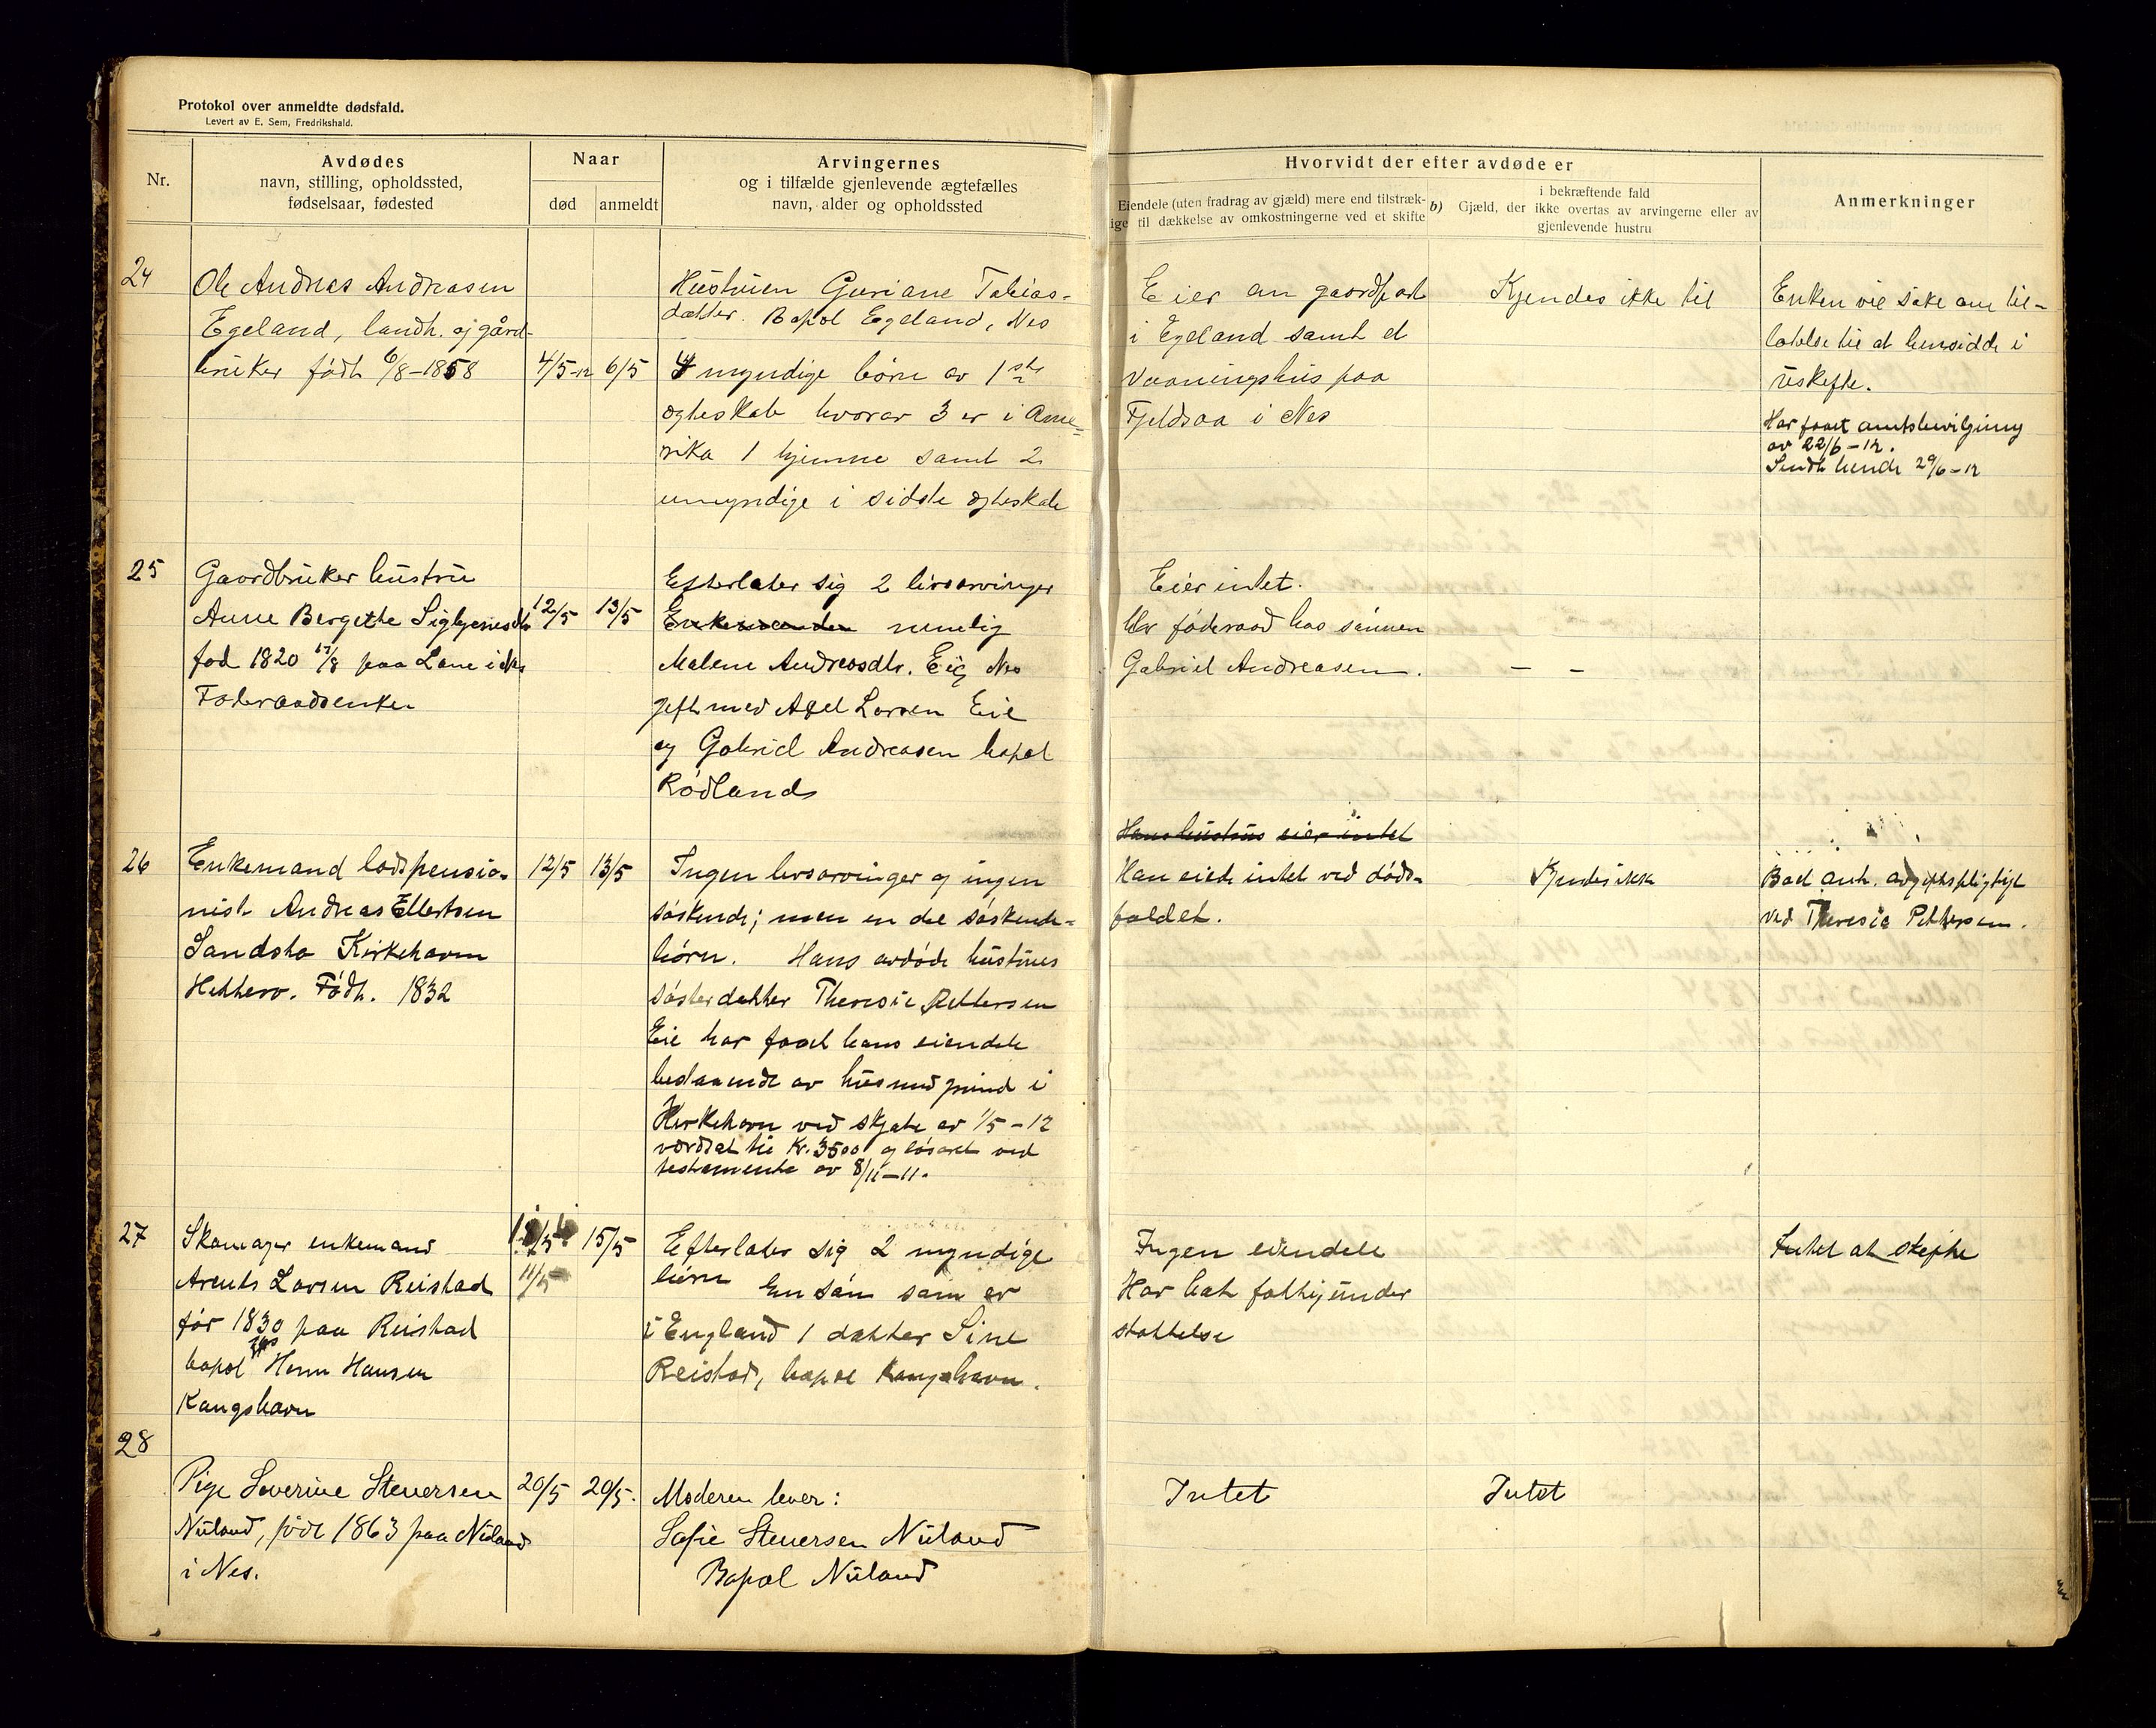 Protokol over anmeldte dødsfald.
Levert av E. Sem, Fredrikshald.
Nr.
Avdødes
navn, stilling, opholdssted,
fødselsaar, fødested
Naar
død
anmeldt
Arvingernes
og i tilfælde gjenlevende ægtefælles
navn, alder og opholdssted
Hvorvidt der efter avdøde er
Eiendele (uten fradrag av gjæld) mere end tilstræk-
ige til dækkelse av omkostningerne ved et skifte
b)
i bekræftende fald
Gjæld, der ikke overtas av arvingerne eller av
gjenlevende hustru
Anmerkninger
24
Ole Andreas Andreasen
Egeland, landh. og gård-
bruker født 6/8-1858
4/5-12
6/5
Hustruen Guriane Tobias-
datter. Bopæl Egeland, Nes
4 myndige børn av 1ste
egteskab hvorav 3 er i Ame-
rika 1 hjemme samt 2
umyndige i sidste egteskab
Eier en gaardpart
i Egeland samt et
Vaaningshus paa
Fjeldsaa i Nes
Kjendes ikke til
Enken vil søke om til-
latelse til at hensidde i
uskifte.
Har faaet amtsbevilgning
av 22/6-12.
Sendt hende 29/6-12
25
Gaardbruker hustru
Anne Bergithe Sigbjørnsdtr
fød 1820 17/8 paa Lone i Nes
Føderaadsenke
12/5
13/5
Efterlater sig 2 livsarvinger
Enkemanden nemlig
Malene Andreasdtr. Eie Nes
gift med Axel Larsen Eie
og Gabriel Andreasen bopæl
Rødland
Eier intet.
Har føderaad hos sønnen
Gabriel Andreasen.
— —
26
Enkemand lodspensio-
nist Andreas Ellertsen
Sandsto Kirkehavn
Hitterø. Født. 1832
12/5
13/5
Ingen livsarvinger og ingen
søskende; men en del søskende-
børn. Hans avdøde hustrues
søsterdatter Theresie Pettersen
Eie har faaet hans eiendele
bestaaende av hus med grund i
Kirkehavn ved skjøte av 1/5-12
værdsat til Kr. 3500 og løsøret ved
testamente av 8/11-11.
Hans hustru eier intet
Han eiede intet ved døds-
faldet.
Kjendes ikke
Boet anh. avgiftspligtigt
ved Theresie Pettersen.
27
Skomager enkemand
Arents Larsen Reistad
før 1830 paa Reistad
bopæl hos Herm Hansen
Kongshavn
11/5
15/5
Efterlater sig 2 myndige
børn En søn som er
i England 1 datter Sine
Reistad, bopæl Kongshavn.
Ingen eiendele
Har hat fattigunder
støttelse
Intet at skifte
28
Pige Severine Stenersen
Nuland, født 1863 paa Nuland
i Nes.
20/5
20/5.
Moderen lever:
Sofie Stenersen Nuland
Bopæl Nuland
Intet
Intet